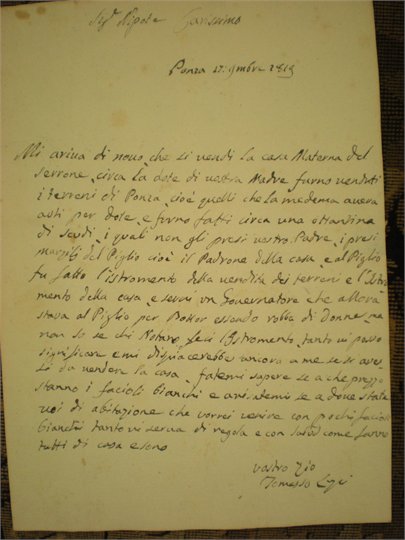 Sig.r Nipote Carissimo
Ponza 27: 9mbre 1819
Mi ariva di nouo che si vendi la casa Materna del
serrone, circa la dote di vostra Madre furno venduti
i terreni di Ponza, cioè quelli che la medema aveva
auti per dose e furno fatti circa una ottantina
di scudi, i quali non gli presi vostro Padre, i presi
del Piglio cioè il Padrone della casa, e al Piglio
fu fatto l'istromento della vendita dei terreni e l'Istro
mento della casa e un Gouernatore che allora
stava al Piglio per essendo robba di Donne, ma
non so se chi Notaro feci l'Istromento, tanto vi posso
significare e mi dispiacerebbe ancora a me se si aves
si da vendere la casa, fatemi sapere se a che prezzo
stanno i facioli bianchi e avisatemi se a dove state
voi di abitazione che vorrei venire con pochi facioli
bianchi tanto vi serva di regola e con come fanno
tutti di casa e sono
vostro Zio
Tomasso